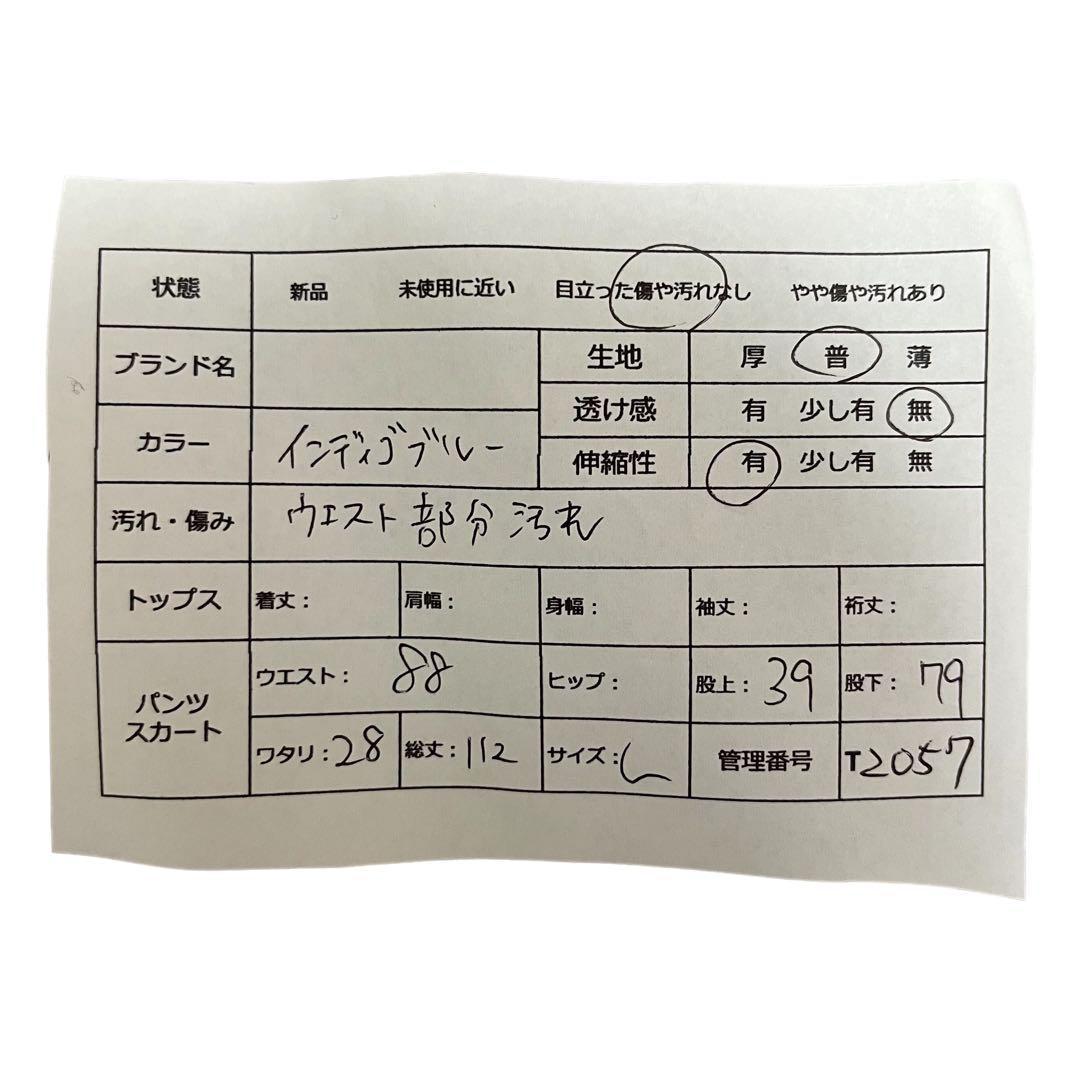 状態 新品 未使用に近い 目立った傷や汚れなし やや傷や汚れあり
ブランド名 生地 厚 普 薄
透け感 有 少し有 無
カラー インディゴブルー 伸縮性 有 少し有 無
汚れ・傷み ウエスト部分汚れ
トップス 着丈： 肩幅： 身幅： 袖丈： 裄丈：
パンツ
スカート
ウエスト： 88 ヒップ： 股上：39 股下：79
ワタリ：28 総丈：112 サイズ：L 管理番号 T2057